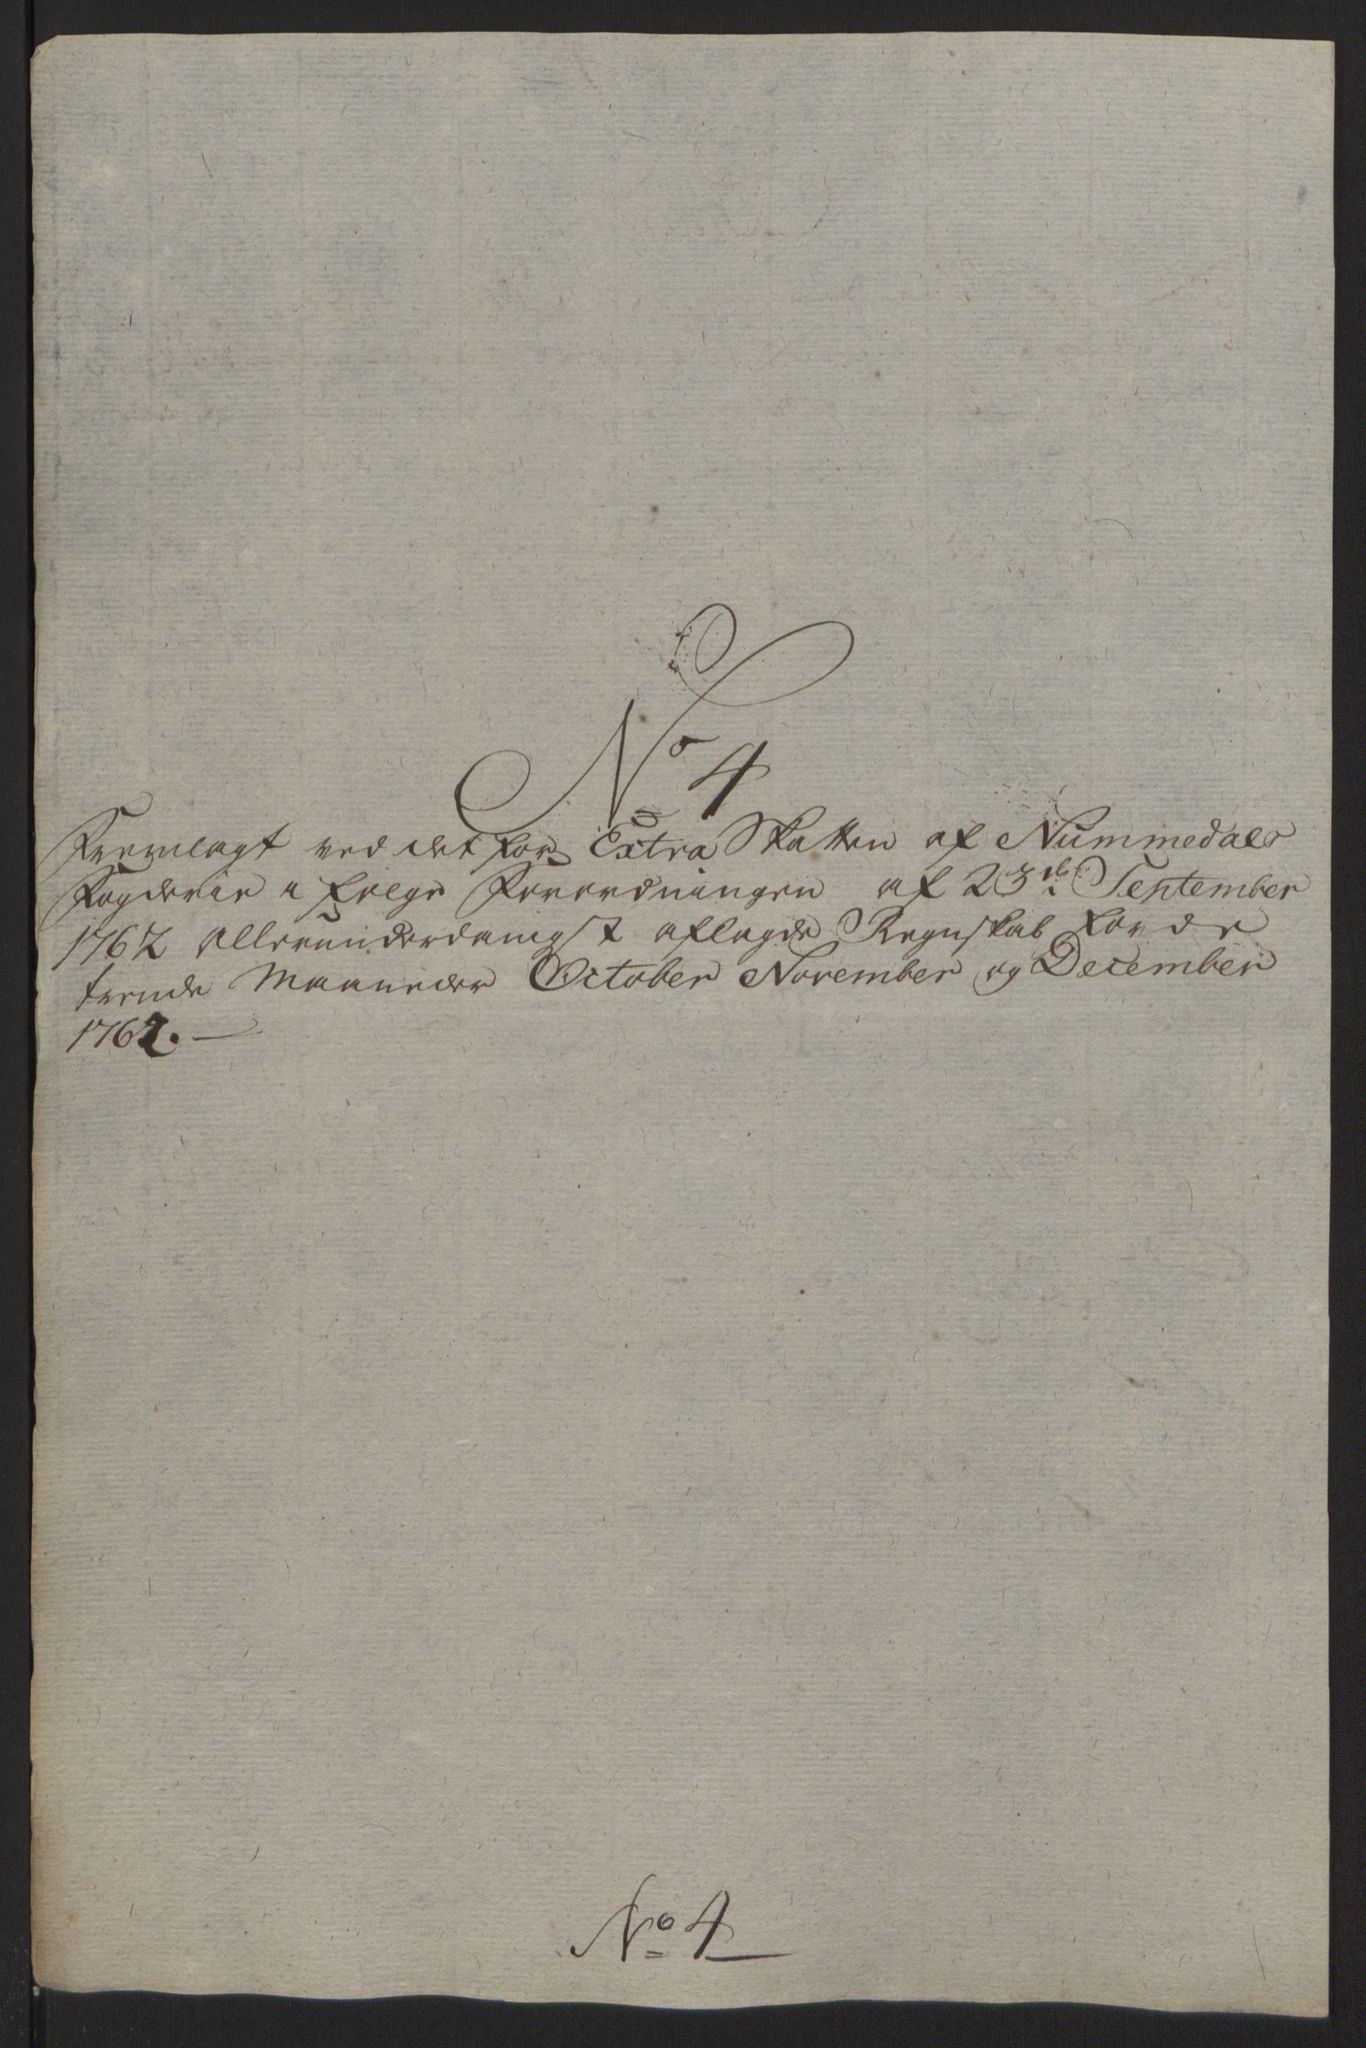 No 4
Fremlagt ved det for Extra Skatten af Nummedals
Fogderie i følge Forordningen af 23de September
1762 Allerunderdanigst aflagde Regnskab for de
trende Maaneder October November og December
1762.
No 4